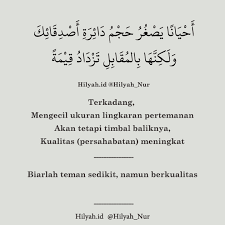 أَحْيَانًا يَصْغُرُ حَجْمُ دَائِرَةِ أَصْدِقَائِكَ
وَلَكِنَّهَا بِالمُقَابِلِ تَزْدَادُ قِيْمَةً
Hilyah.id @Hilyah_Nur
Terkadang,
Mengecil ukuran lingkaran pertemanan
Akan tetapi timbal baliknya,
Kualitas (persahabatan) meningkat
Biarlah teman sedikit, namun berkualitas
Hilyah.id @Hilyah_Nur